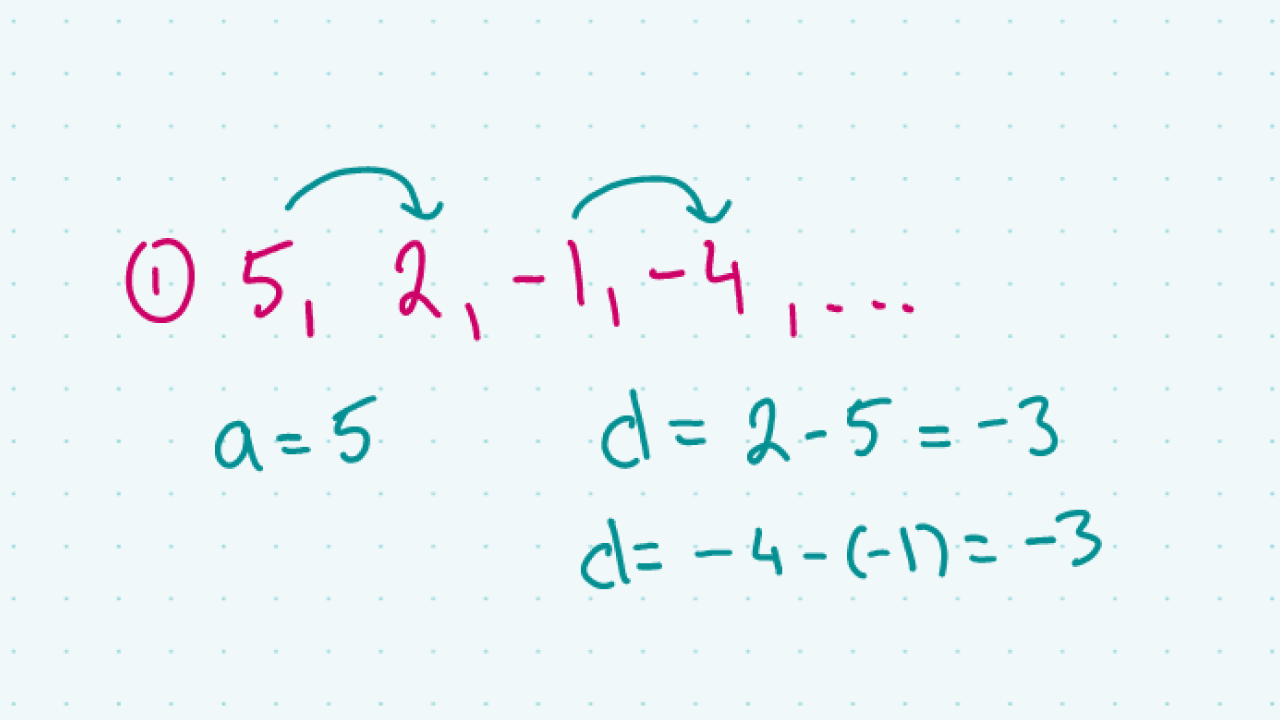 ① 5, 2, -1, -4, ...
a = 5
d = 2 - 5 = -3
d = -4 - (-1) = -3